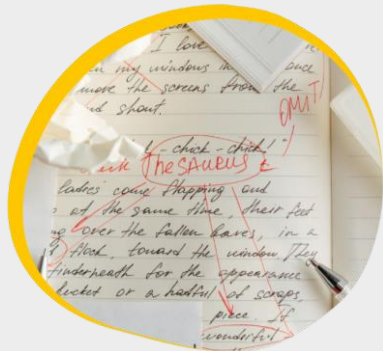 I love
my windows in
move the screens from the
nd shout.
OMIT
- chick - chick! -
THESAURUS
ladies' come flapping and
at the same time, their feet
over the fallen leaves, in a
flock, toward the window. They
underneath for the appearance
bucket or a hadful of scraps,
piece. If
wonderful